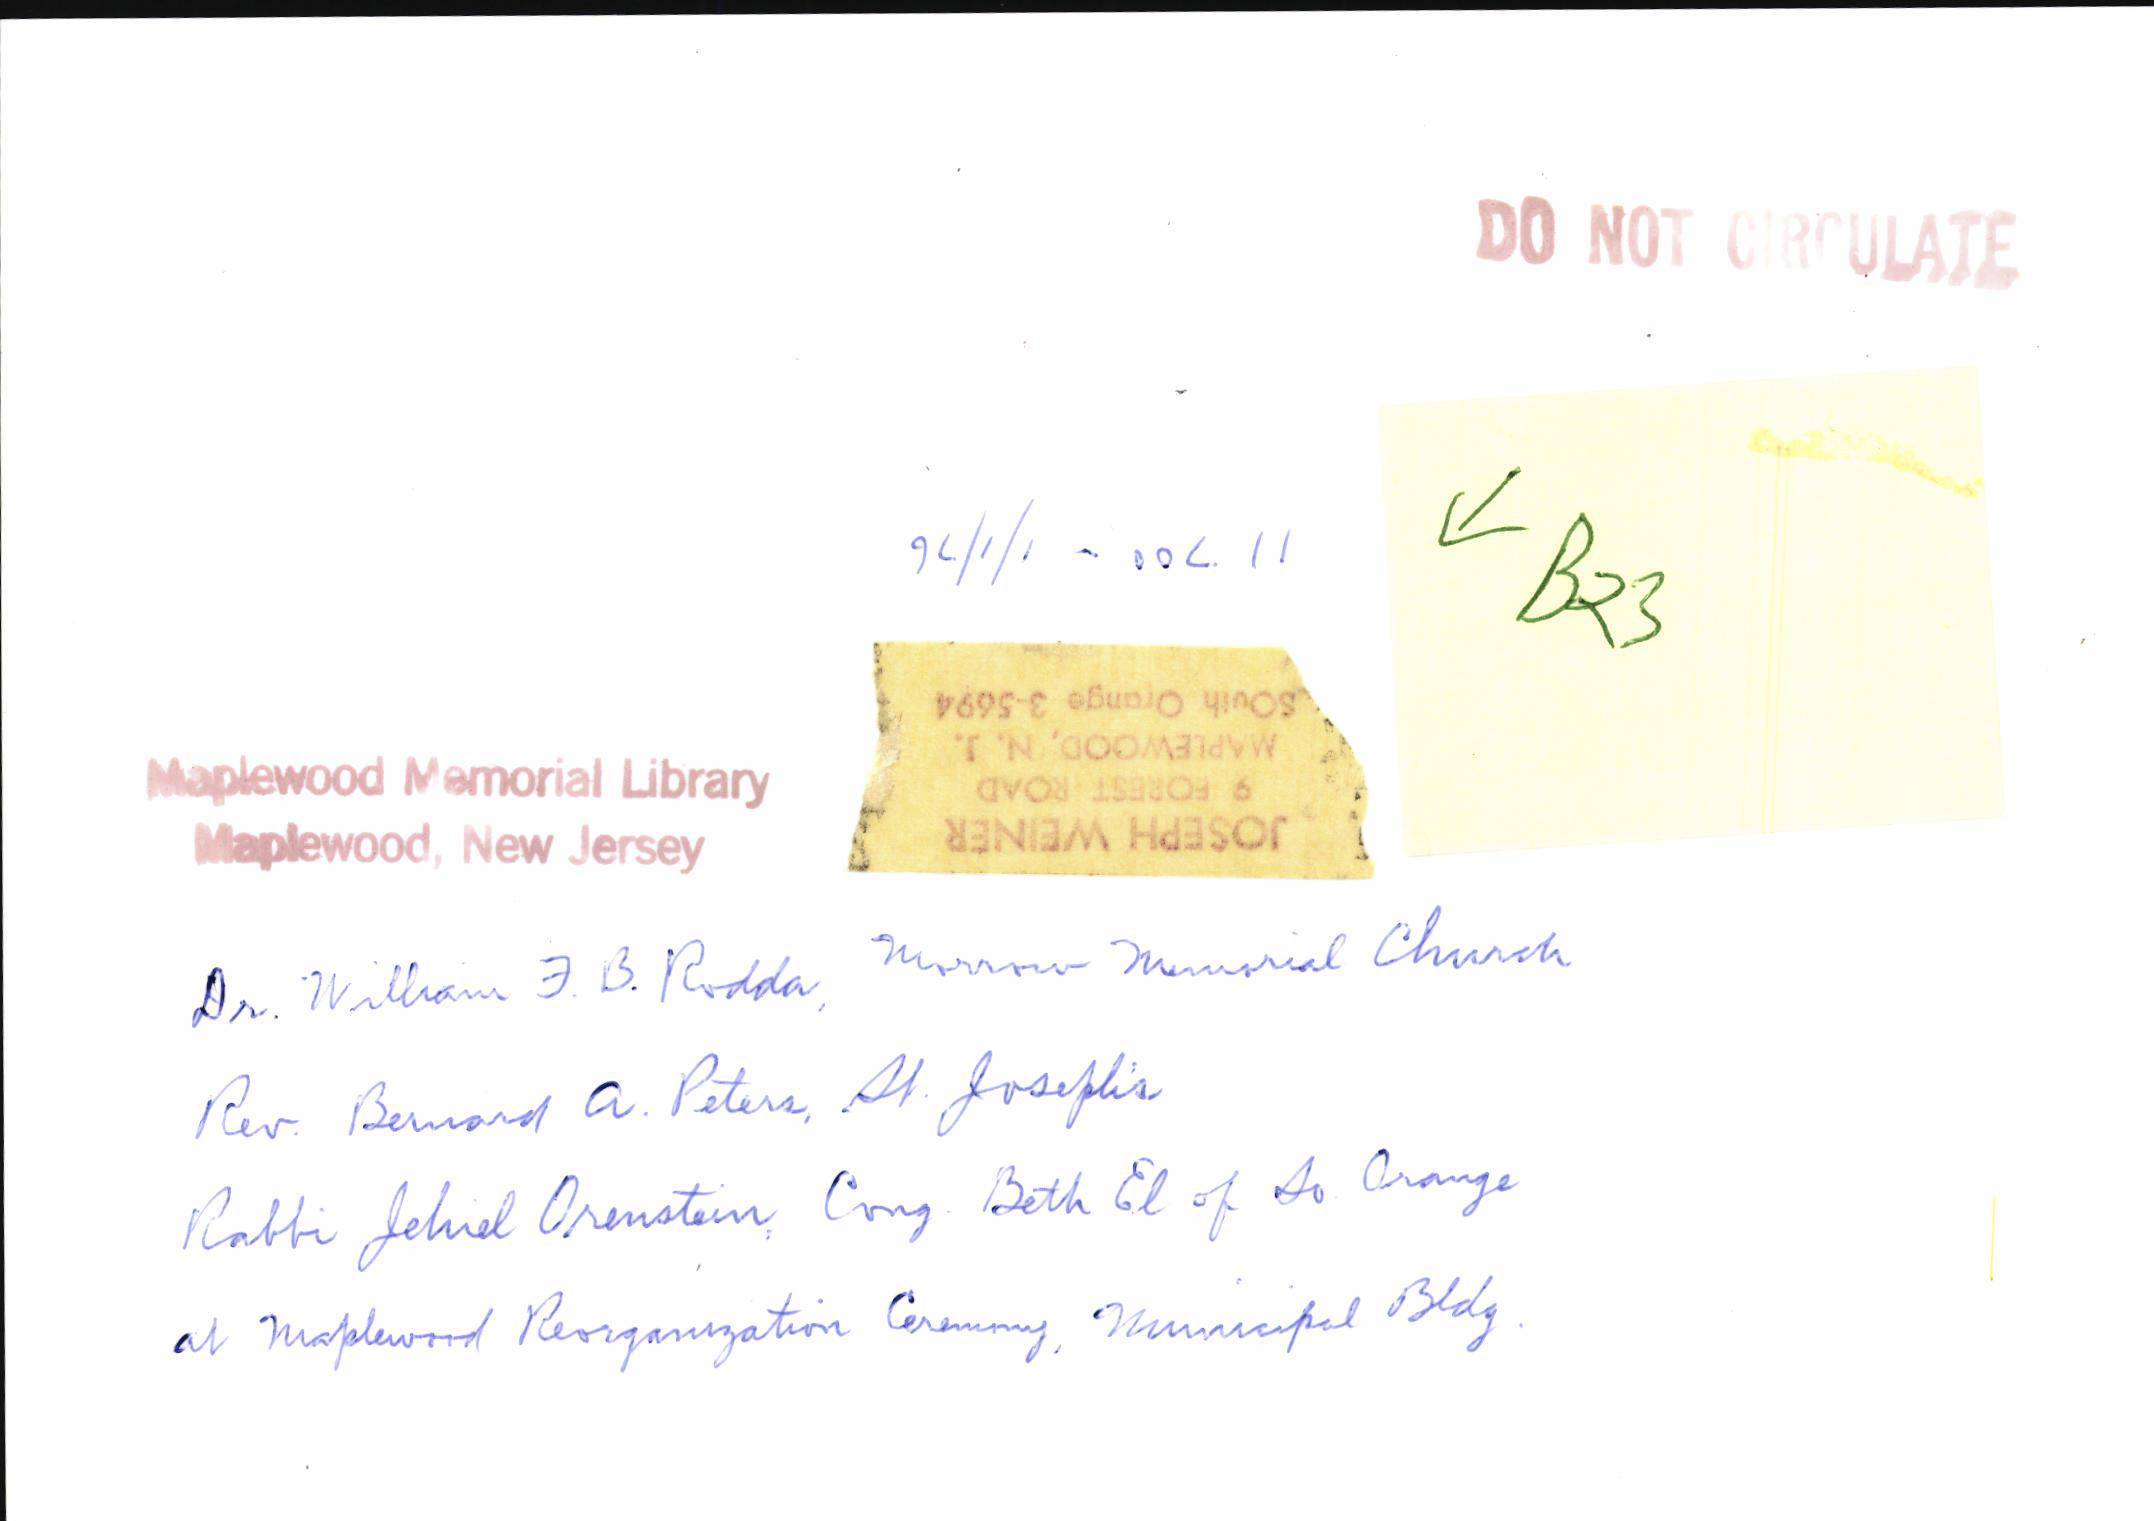 DO NOT CIRCULATE
B23
1/1/76
JOSEPH WEINER
9 FOREST ROAD
MAPLEWOOD, N. J.
SOuth Orange 3-5694
Maplewood Memorial Library
Maplewood, New Jersey
Dr. William F. B. Rodda, Morrow Memorial Church
Rev. Bernard A. Peters, St. Joseph's
Rabbi Jehiel Orenstein, Cong. Beth El of So Orange
at Maplewood Reorganization Ceremony, Municipal Bldg.